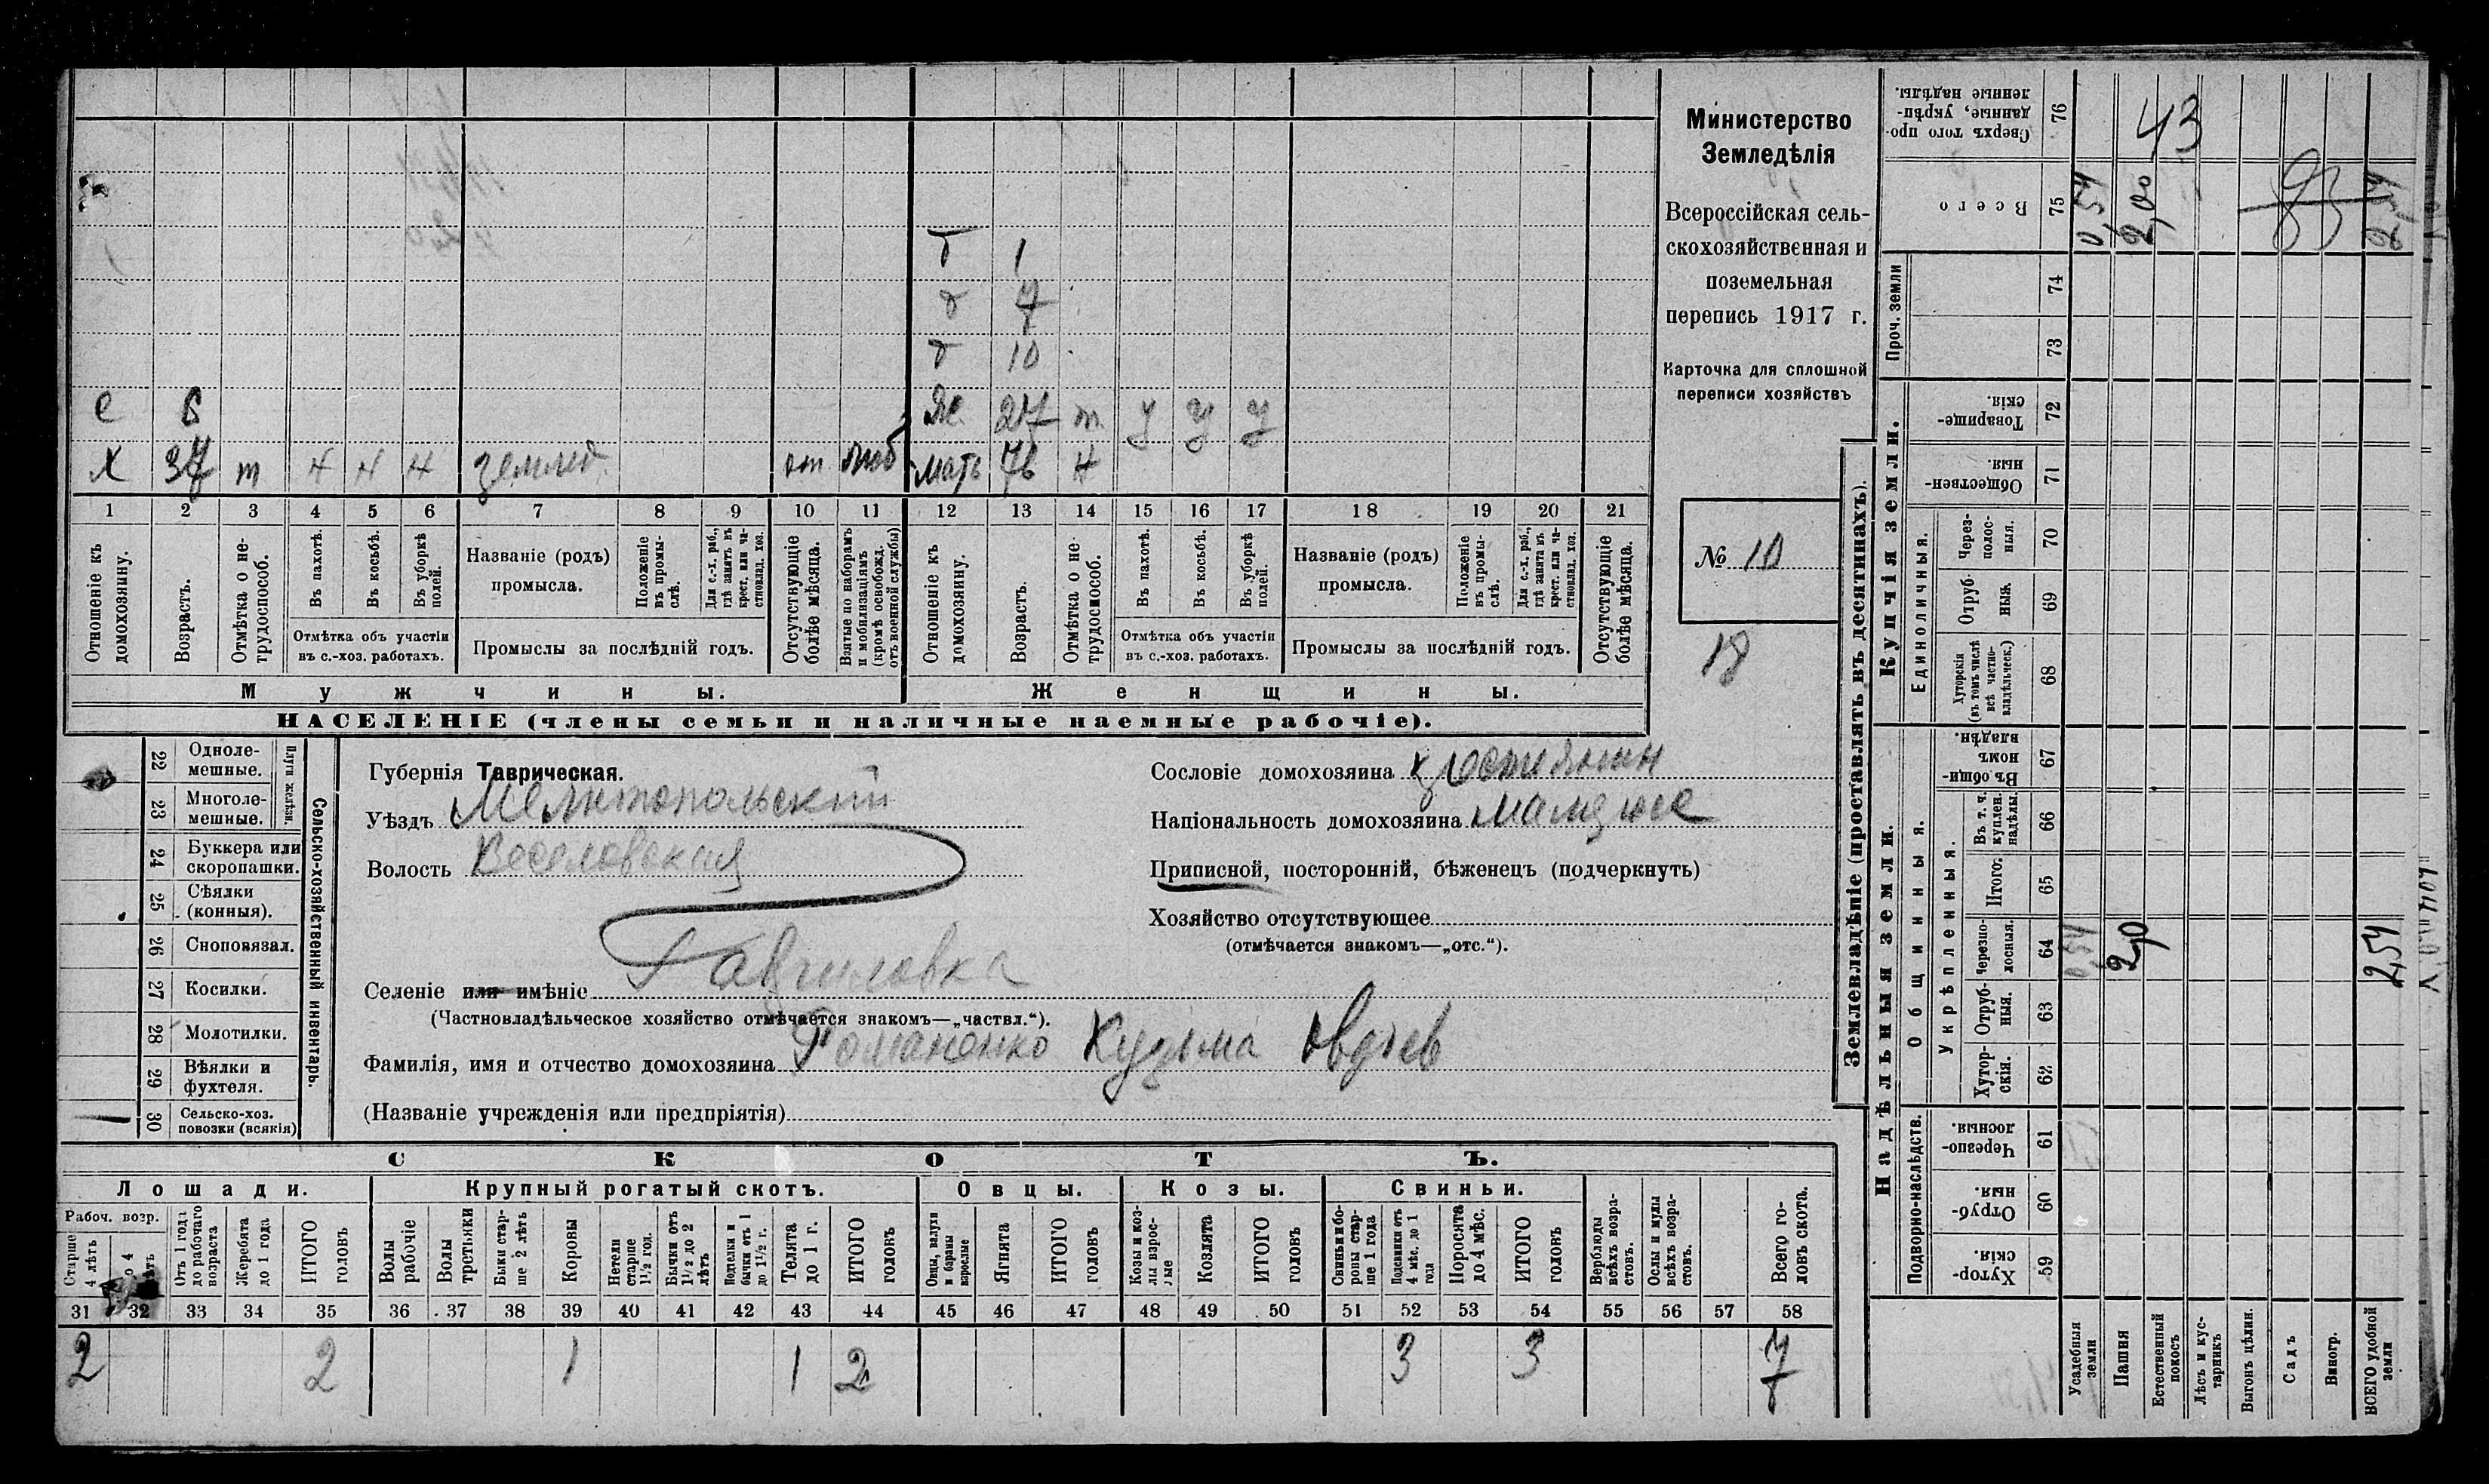 Министерство
Земледѣлія
Всероссійская сель-
скохозяйственная и
поземельная
перепись 1917 г.
Карточка для сплошной
переписи хозяйствъ
№ 10
18
т 1
7
т 10
с 6 Ж. 27 т. у у у
Х 37 т н н н землед. от моб мать 76 н
1 2 3 4 5 6 7 8 9 10 11 12 13 14 15 16 17 18 19 20 21
Отношеніе къ домохозяину.
Возрастъ.
Отмѣтка о не-трудоспособ.
Въ пахотѣ.
Въ косьбѣ.
Въ уборкѣ полей.
Отмѣтка объ участіи
въ с.-хоз. работахъ.
Названіе (родъ)
промысла.
Положеніе въ промы-слѣ.
Для с.-х. раб., гдѣ занятъ въ крест. или ча-стновлад. хоз.
Промыслы за послѣдній годъ.
Отсутствующіе болѣе мѣсяца.
Взятые по наборамъ и мобилизаціямъ (кромѣ освобожд. отъ военной службы)
Отношеніе къ домохозяину.
Возрастъ.
Отмѣтка о не-трудоспособ.
Въ пахотѣ.
Въ косьбѣ.
Въ уборкѣ полей.
Отмѣтка объ участіи
въ с.-хоз. работахъ.
Названіе (родъ)
промысла.
Положеніе въ промы-слѣ.
Для с.-х. раб., гдѣ занята въ крест. или ча-стновлад. хоз.
Промыслы за послѣдній годъ.
Отсутствующіе болѣе мѣсяца.
Мужчины.
Женщины.
НАСЕЛЕНІЕ (члены семьи и наличные наемные рабочіе).
Сельско-хозяйственный инвентарь.
Плуги желѣзн.
22 Одноле-мешные.
23 Многоле-мешные.
24 Буккера или скоропашки.
25 Сѣялки (конныя).
26 Сноповязал.
27 Косилки.
28 Молотилки.
29 Вѣялки и фухтеля.
30 Сельско-хоз. повозки (всякія)
Губернія Таврическая.
Уѣздъ Мелитопольский
Волость Веселовская
Селеніе или имѣніе Гавриловка
(Частновладѣльческое хозяйство отмѣчается знакомъ—„частвл.“).
Фамилія, имя и отчество домохозяина Романенко Кузьма Овдіев
(Названіе учрежденія или предпріятія)
Сословіе домохозяина крестянин
Національность домохозяина
Приписной, посторонній, бѣженецъ (подчеркнуть)
Хозяйство отсутствующее
(отмѣчается знакомъ—„отс.“).
СКОТЪ.
Лошади. Крупный рогатый скотъ. Овцы. Козы. Свиньи.
Рабоч. возр.
Старше 4 лѣтъ
Отъ 1 года до рабочаго возраста
Жеребята до 1 года
ИТОГО головъ
Волы рабочіе
Волы третьяки
Быки стар-ше 2 лѣтъ
Коровы
Нетели старше 1½ год.
Бычки отъ 1½ до 2 лѣтъ
Подтелки и бычки отъ 1 до 1½ г.
Телята до 1 г.
ИТОГО головъ
Овцы, валухи и бараны взрослые
Ягнята
ИТОГО головъ
Козы и коз-лы взрос-лые
Козлята
ИТОГО головъ
Свиньи и бо-ровы стар-ше 1 года
Подсвинки отъ 4 мѣс. до 1 года
Поросята до 4 мѣс.
ИТОГО головъ
Верблюды всѣхъ возра-стовъ.
Ослы и мулы всѣхъ возра-стовъ.
Всего го-ловъ скота.
31 32 33 34 35 36 37 38 39 40 41 42 43 44 45 46 47 48 49 50 51 52 53 54 55 56 57 58
2 2 1 1 2 3 3 7
Землевладѣніе (проставлять въ десятинахъ).
Купчія земли.
Надѣльныя земли.
76 Сверхъ того про-данные, укрѣп-ленные надѣлы.
43
75 Всего
0,54
2,00
2,54
Проч. земли
74
73
72 Товарище-скія.
71 Обществен-ныя.
Единоличныя.
70 Через-полос-ныя.
69 Отруб-ныя.
68 Хуторскія (въ томъ числѣ всѣ частно-владѣльческ.)
Общинныя.
67 Въ общи-номъ владѣн.
Укрѣпленныя.
66 Въ т. ч. куплен. надѣлы.
65 Итого.
64 Черезпо-лосныя.
0,54
2,00
2,54
63 Отруб-ныя.
62 Хутор-скія.
Подворно-наслѣдств.
61 Черезпо-лосныя.
60 Отруб-ныя.
59 Хутор-скія.
Усадебныя земли
Пашня
Естественный покосъ
Лѣсъ и кус-тарникъ
Выгонъ цѣлин.
Садъ
Виногр.
ВСЕГО удобной земли